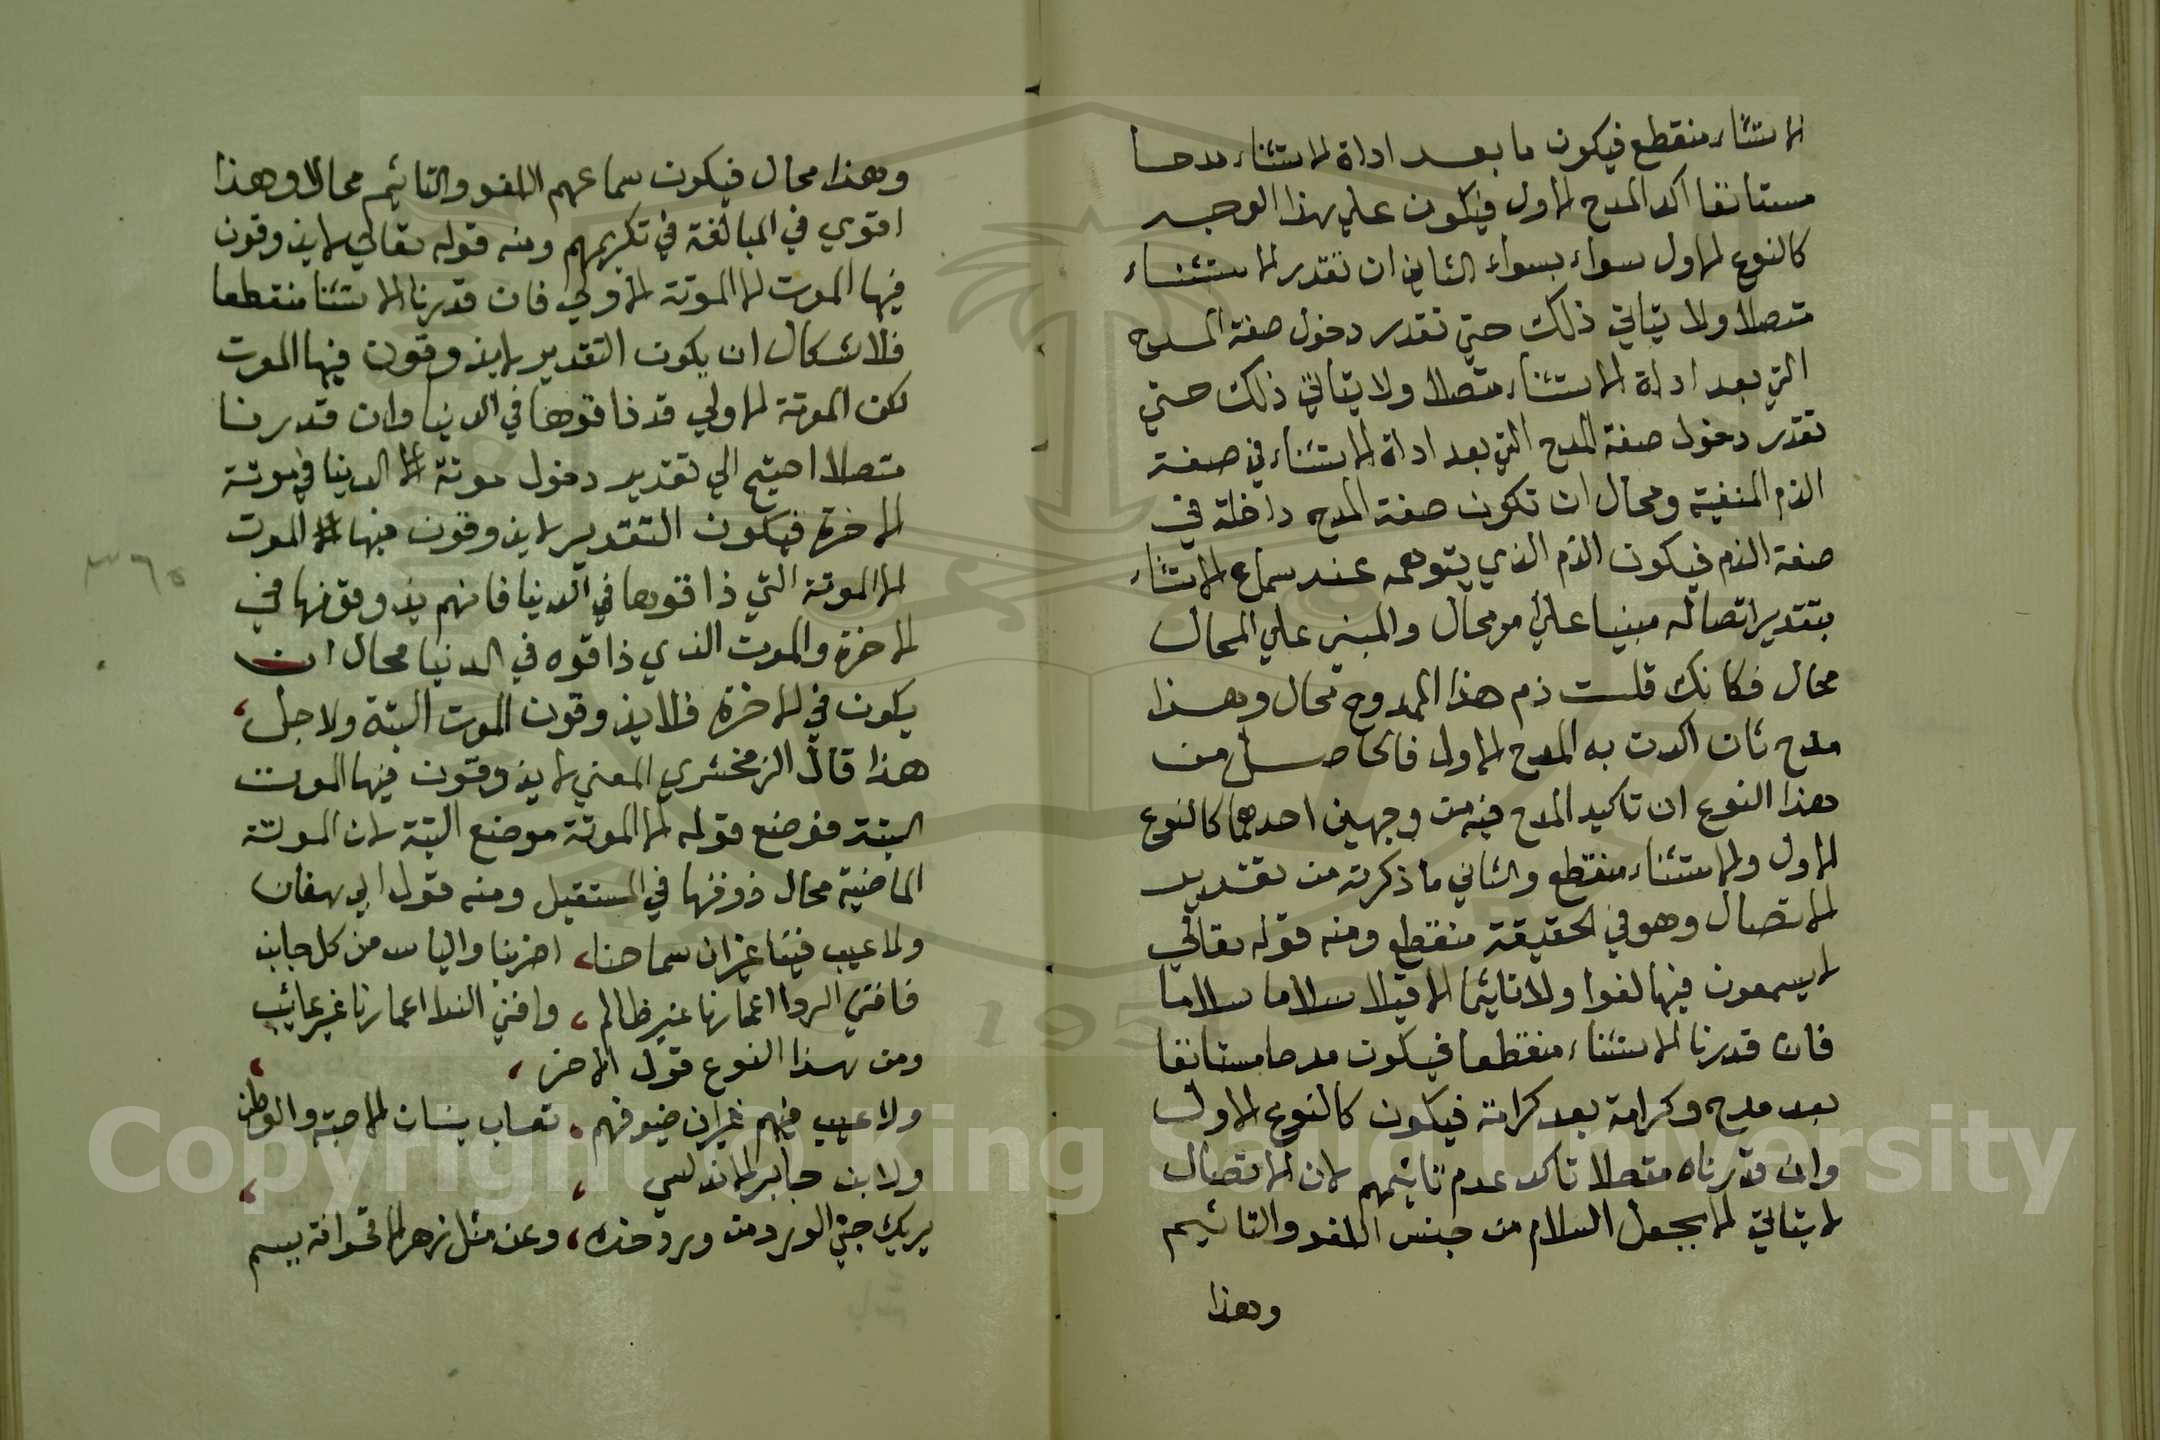 الاستثناء منقطع فيكون ما بعد اداة الاستثناء مدحا
مستانفا اكد المدح الاول فيكون علي هذا الوجه
كالنوع الاول سواء بسواء الثاني ان تقدر الاستثناء
متصلا ولا يتاتي ذلك حتي تقدر دخول صفة المدح
التي بعد اداة الاستثناء متصلا ولا يتاتي ذلك حتي
تقدر دخول صفة المدح التي بعد اداة الاستثناء في صفة
الذم المنفية ومحال ان تكون صفة المدح داخلة في
صفة الذم فيكون الذم الذي يتوهمه عند سماع الاستثناء
بتقدير اتصاله مبنيا علي امر محال والمبني علي المحال
محال فكانك قلت ذم هذا الممدوح محال وهذا
مدح ثان اكدت به المدح الاول فالحاصل من
هذا النوع ان تاكيد المدح فيه من وجهين احدهما كالنوع
الاول والاستثناء منقطع والثاني ما ذكرته من تقدير
الاتصال وهو في الحقيقة منقطع ومنه قوله تعالي
لا يسمعون فيها لغوا ولا تاثيما الا قيلا سلاما سلاما
فان قدرنا الاستثناء منقطعا فيكون مدحا مستانفا
بعد مدح وكرامة بعد كرامة فيكون كالنوع الاول
وان قدرناه متصلا تاكد عدم تاثيمهم لان الاتصال
لا يتاتي الا بجعل السلام من جنس اللغو والتاثيم
وهذا
وهذا محال فيكون سماعهم اللغو والتاثيم محالا وهذا
اقوي في المبالغة في تكريمهم ومنه قوله تعالي لا يذوقون
فيها الموت الا الموتة الاولي فان قدرنا الاستثنا منقطعا
فلا اشكال ان يكون التقدير لا يذوقون فيها الموت
لكن الموتة الاولي قد ذاقوها في الدنيا وان قدرنا
متصلا احتيج الي تقدير دخول موتة الدنيا في موتة
الاخرة فيكون التقدير لا يذوقون فيها الموت
الا الموتة التي ذاقوها في الدنيا فانهم يذوقونها في
الاخرة والموت الذي ذاقوه في الدنيا محال ان
يكون في الاخرة فلا يذوقون الموت البتة ولاجل
هذا قال الزمخشري المعني لا يذوقون فيها الموت
البتة فوضع قوله الا الموتة موضع البتة لان الموتة
الماضية محال ذوقها في المستقبل ومنه قول ابي هفان
ولا عيب فينا غير ان سماحنا، اضربنا والباس من كل جانب
فافني الردا اعمارنا غير ظالم، وافني الندا اعمارنا غير عائب
ومن هذا النوع قول الاخر،
ولا عيب فيهم غير ان ضيوفهم، تعاب بنسيان الاحبة والوطن
ولابن جابر الاندلسي
يريك جني الورد من ورد خده، وعن مثل زهر الاقحوانة يبسم
٣٦٥
Copyright © King Saud University
1957